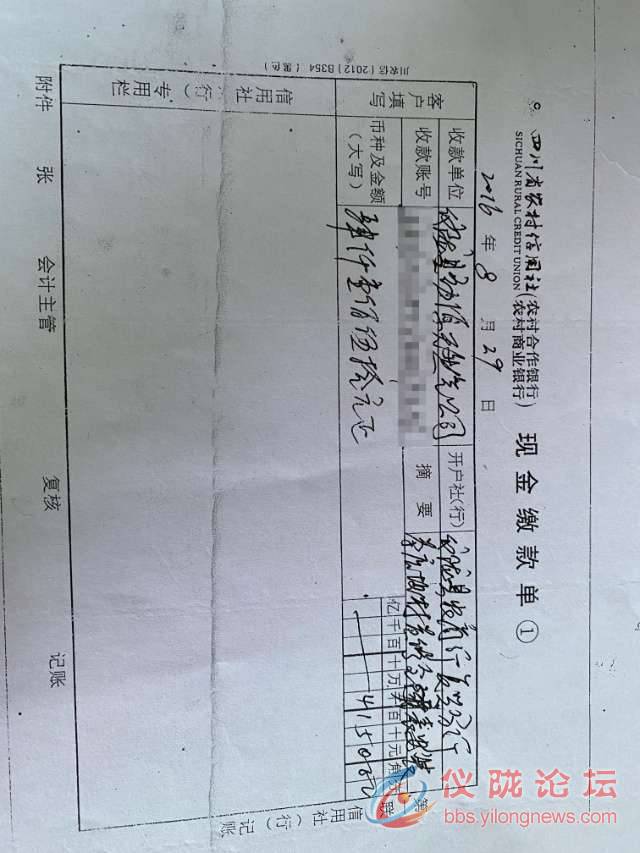 四川省农村信用社(农村合作银行)
(农村商业银行)
SICHUAN RURAL CREDIT UNION
现金缴款单 ①
2016 年 8 月 29 日
客户填写
收款单位
仪陇县 公司
开户社(行)
仪陇县农商行
收款账号
摘要
币种及金额
(大写)
肆仟壹佰伍拾元正
亿千百十万千百十元角分
415000
信用社(行)专用栏
第 联
信用社(行)记账
附件 张 会计主管 复核 记账
川农信[2012]B354(黑色)
仪陇论坛
bbs.yilongnews.com